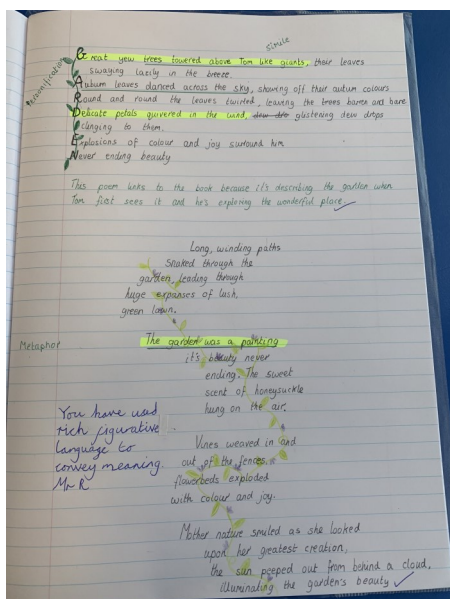 Simile
Great yew trees towered above Tom like giants, their leaves
swaying lazily in the breeze.
Personification
Auburn leaves danced across the sky, showing off their autum colours
Round and round the leaves twirled, leaving the trees baren and bare
Delicate petals quivered in the wind, dew dro glistening dew drops
clinging to them.
Explosions of colour and joy surround him
Never ending beauty
This poem links to the book because it's describing the garden when
Tom first sees it and he's exploring the wonderful place.
Long, winding paths
Snaked through the
garden, leading through
huge expanses of lush,
green lawn.
Metaphor
The garden was a painting
it's beauty never
ending. The sweet
scent of honeysuckle
hung on the air.
You have used
rich figurative
language to
convey meaning.
Mr R
Vines weaved in and
out of the fences,
flowerbeds exploded
with colour and joy.
Mother nature smiled as she looked
upon her greatest creation,
the sun peeped out from behind a cloud,
illuminating the garden's beauty